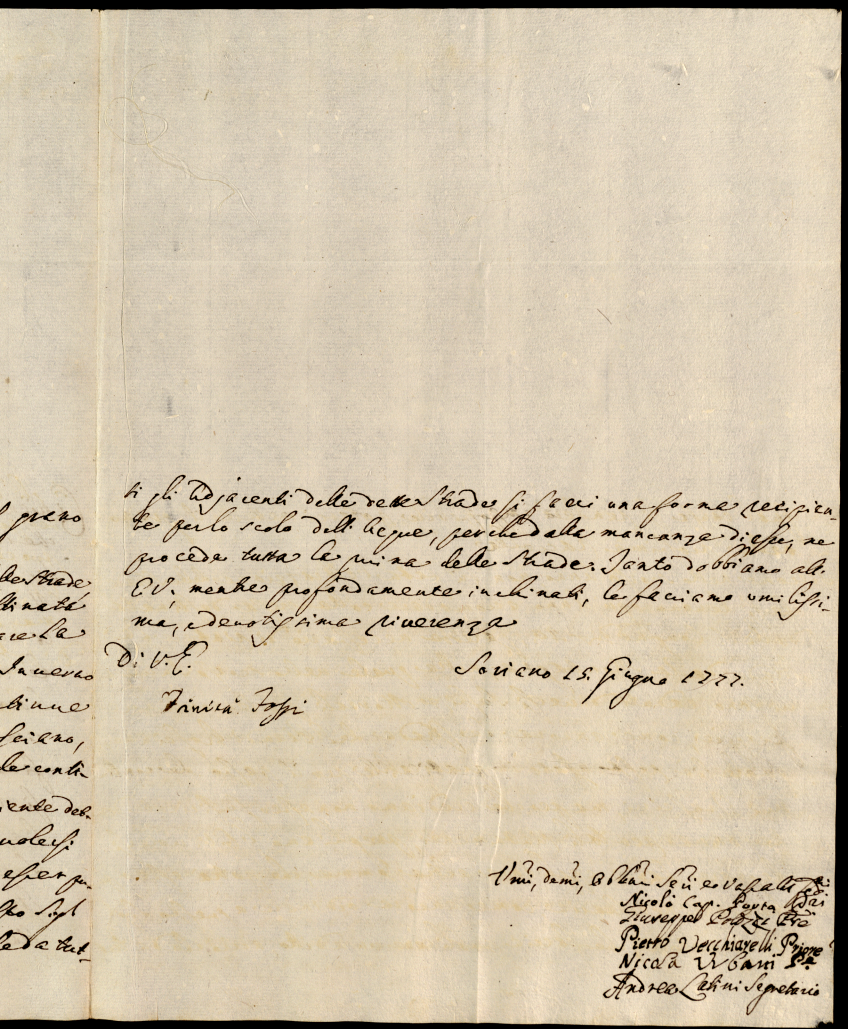 l grano
lle Strade
ttinata
are la
Inverno
tinue
sciano,
le conti-
iente deb-
volersi
esser pu-
leda tut-
ti gli Adjacenti delle dette Strade si facci una forma recipien-
te per lo scolo dell'Acque, perche dalla mancanza di esse, ne
procede tutta la ruina delle Strade. Tanto dobbiamo all'
E.V., mentre profondamente inchinati, le facciamo umilissi-
ma, e devotissima riverenza
Di V.E.
Soriano 15. Giugno 1777.
Trinità Fossi
Umi, devmi, ed obblmi Servi e Vassalli
Nicolò Cap. Porta
Giuseppe Pre
Pietro Vecchiarelli Priore
Nicola Urbani Pre
Andrea Latini Segretario